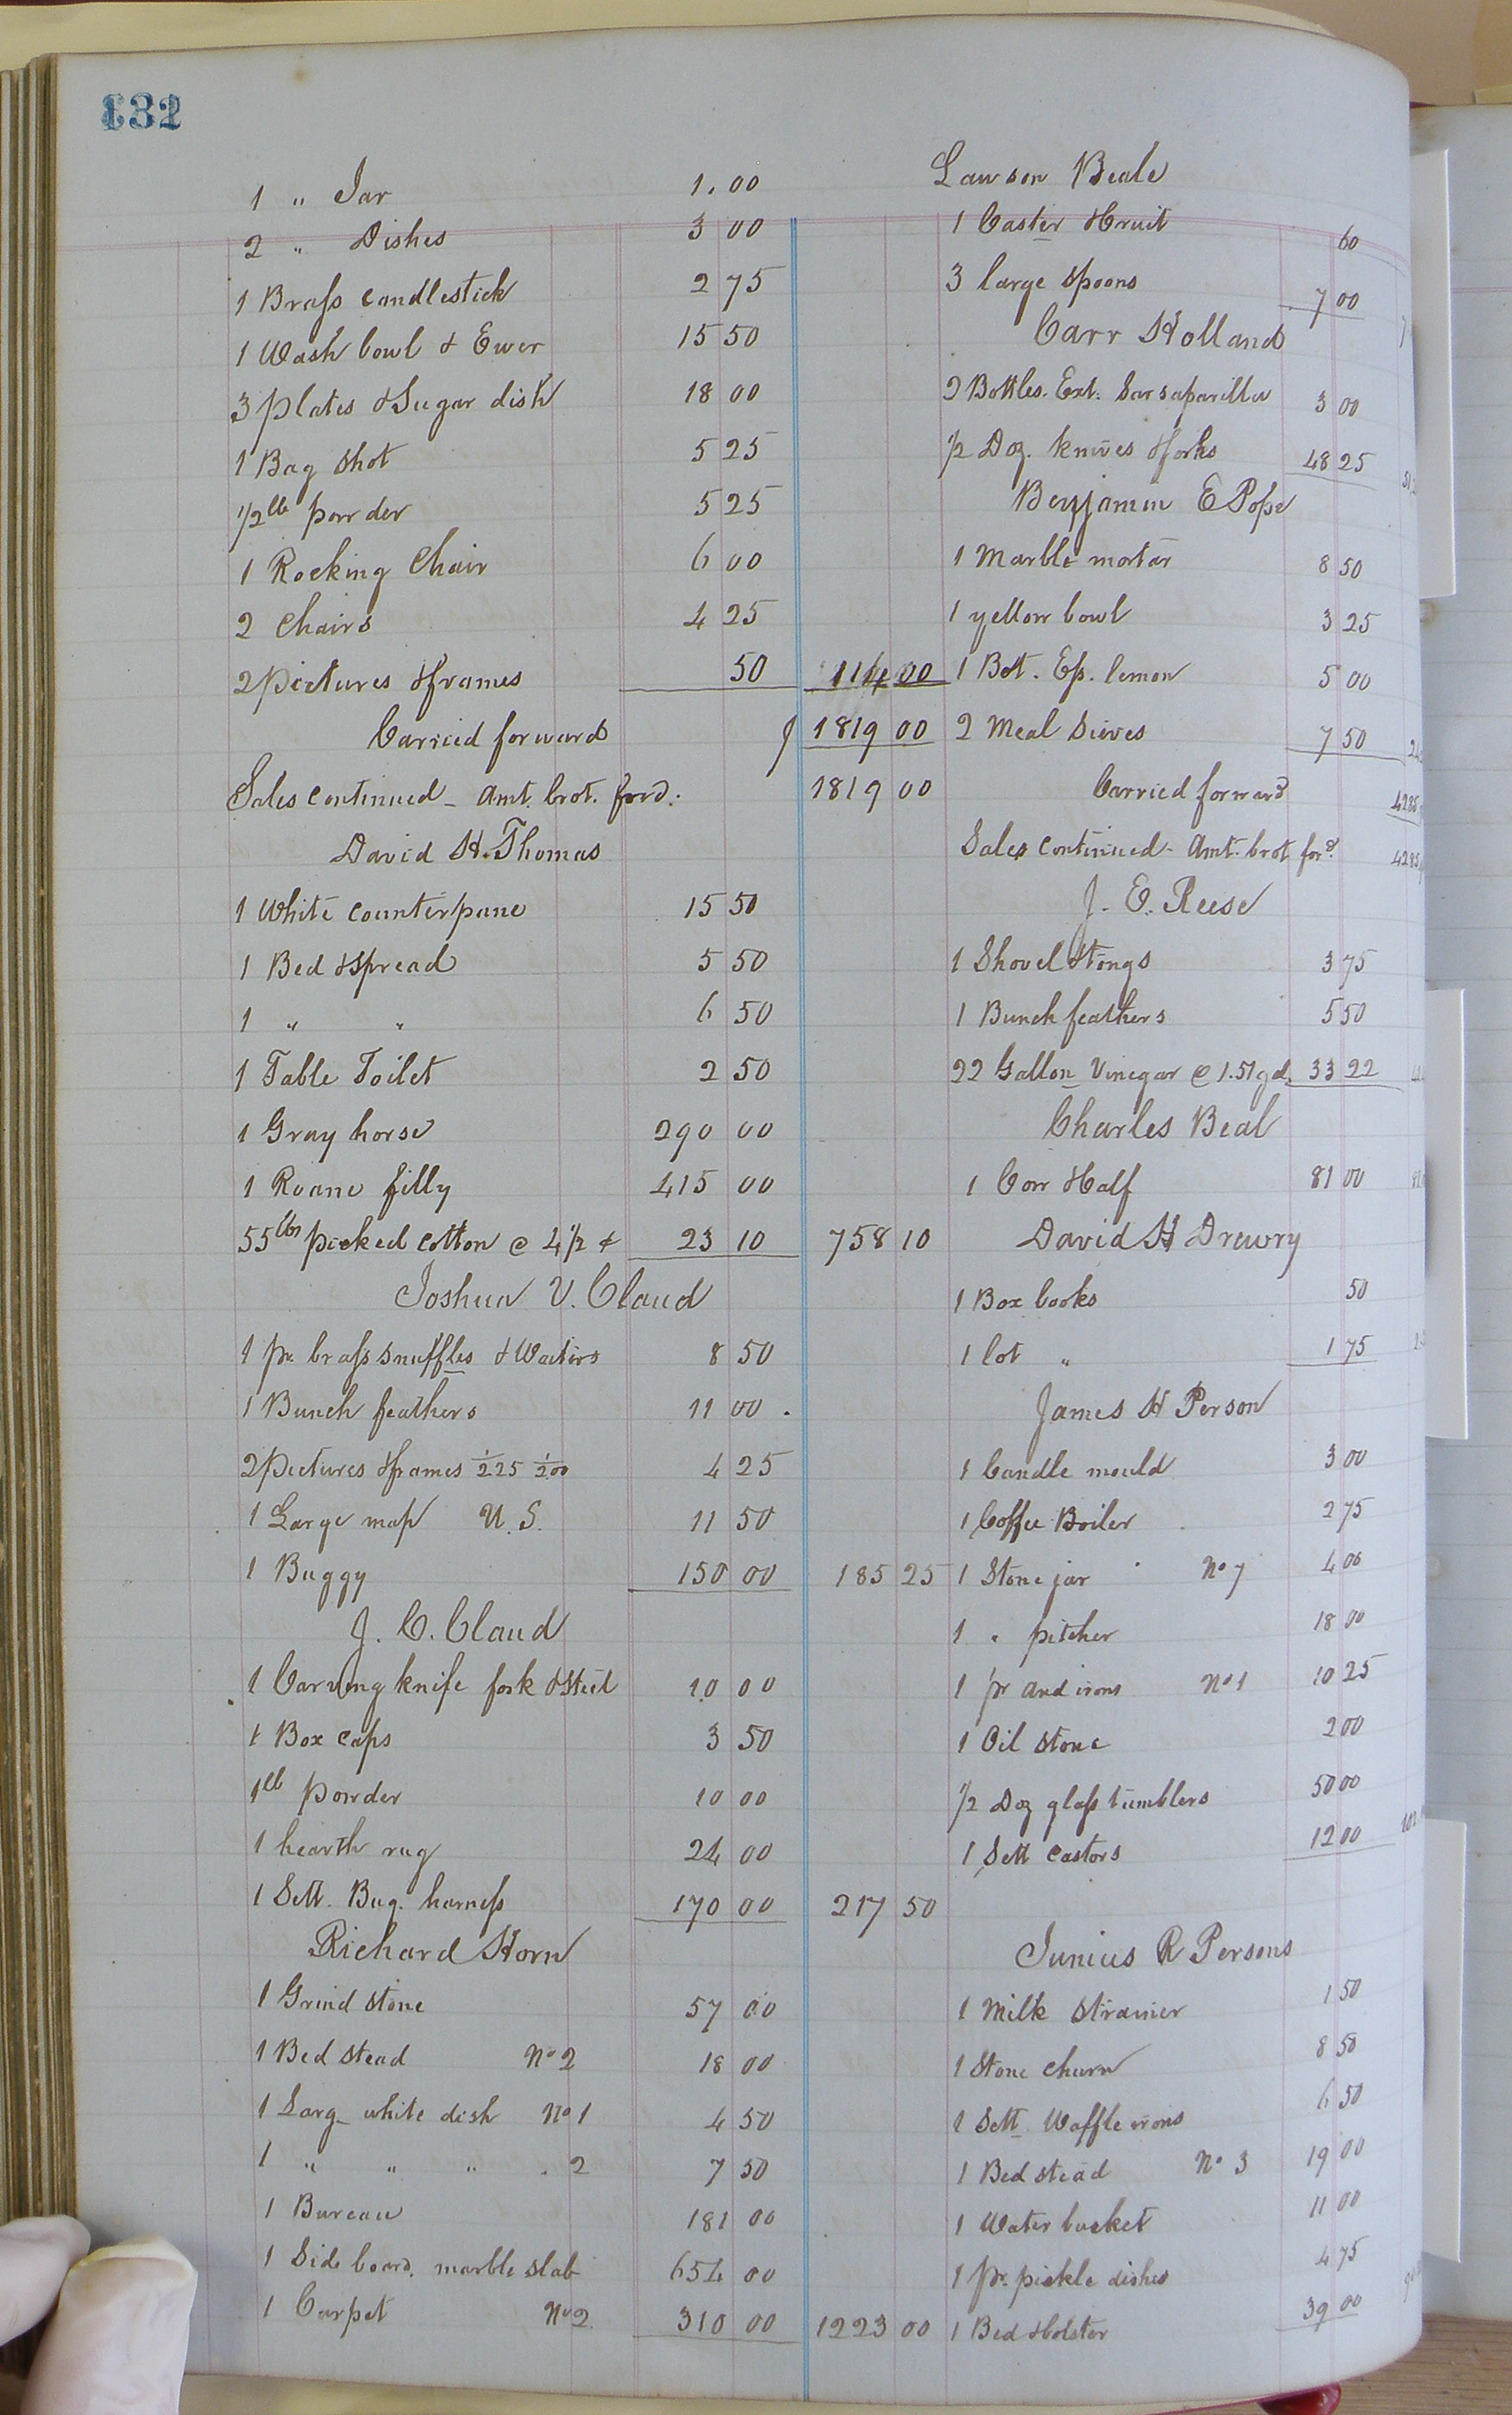 132
1 " Jar 1.00
2 " Dishes 3 00
1 Brass candlestick 2 75
1 Wash bowl & Ewer 15 50
3 plates & Sugar dish 18 00
1 Bag Shot 5 25
1/2 lb powder 5 25
1 Rocking Chair 6 00
2 Chairs 4 25
2 Pictures & frames 50 114 00
Carried forward 1819 00
Sales continued - Amt. brot. ford. 1819 00
David H. Thomas
1 White counterpane 15 50
1 Bed & Spread 5 50
1 " " 6 50
1 Table Toilet 2 50
1 Gray horse 290 00
1 Roane filly 415 00
55 lbs picked cotton @ 4 1/2 ¢ 23 10 758 10
Joshua V. Claud
1 pr. brass snuffles & Waiters 8 50
1 Bunch feathers 11 00
2 Pictures & frames 1/2 25 1/2 00 4 25
1 Large map U.S. 11 50
1 Buggy 150 00 185 25
J. C. Claud
1 Carving knife fork & Steel 10 00
1 Box caps 3 50
1 lb Powder 10 00
1 hearth rug 24 00
1 Sett. Bug. harness 170 00 217 50
Richard Horn
1 Grind stone 57 00
1 Bed stead No 2 18 00
1 Larg white dish No 1 4 50
1 " " " . 2 7 50
1 Bureau 181 00
1 Side board, marble slab 654 00
1 Carpet No 2 310 00 1223 00
Lawson Beale
1 Caster & Cruit 60
3 large Spoons 7 00
Carr Holland
2 Bottles. Ext. Sarsaparilla 3 00
1/2 Doz. knives & forks 48 25
Benjamin E Pope
1 Marble mortar 8 50
1 yellow bowl 3 25
1 Bot. Es. lemon 5 00
2 Meal Sieves 7 50
Carried forward 4285
Sales continued - Amt. brot ford. 4285
J. E. Reese
1 Shovel & tongs 3 75
1 Bunch feathers 5 50
22 Gallon Vinegar @ 1.51 gal. 33 22
Charles Beal
1 Cow & Calf 81 00
David H Drewry
1 Box books 50
1 lot " 1 75
James H Person
1 Candle mould 3 00
1 Coffee Boiler 2 75
1 Stone jar No 7 4 00
1 " pitcher 18 00
1 pr and irons No 1 10 25
1 Oil stone 2 00
1/2 Doz glass tumblers 50 00
1 Sett castors 12 00
Junius R Persons
1 Milk Strainer 1 50
1 Stone churn 8 50
1 Sett Waffle irons 6 50
1 Bed stead No 3 19 00
1 Water bucket 11 00
1 pr. pickle dishes 4 75
1 Bed & bolster 39 00